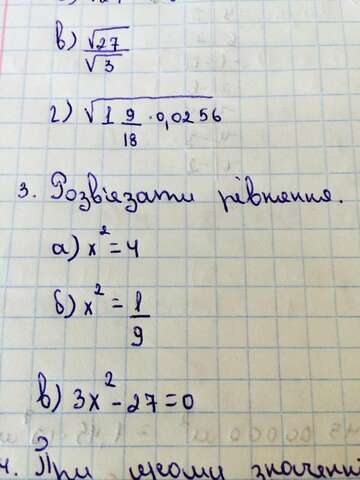 в) √27/√3
г) √1 9/18 · 0,0256
3. Розв'язати рівняння.
а) x² = 4
б) x² = 1/9
в) 3x² - 27 = 0
4. При якому значенні